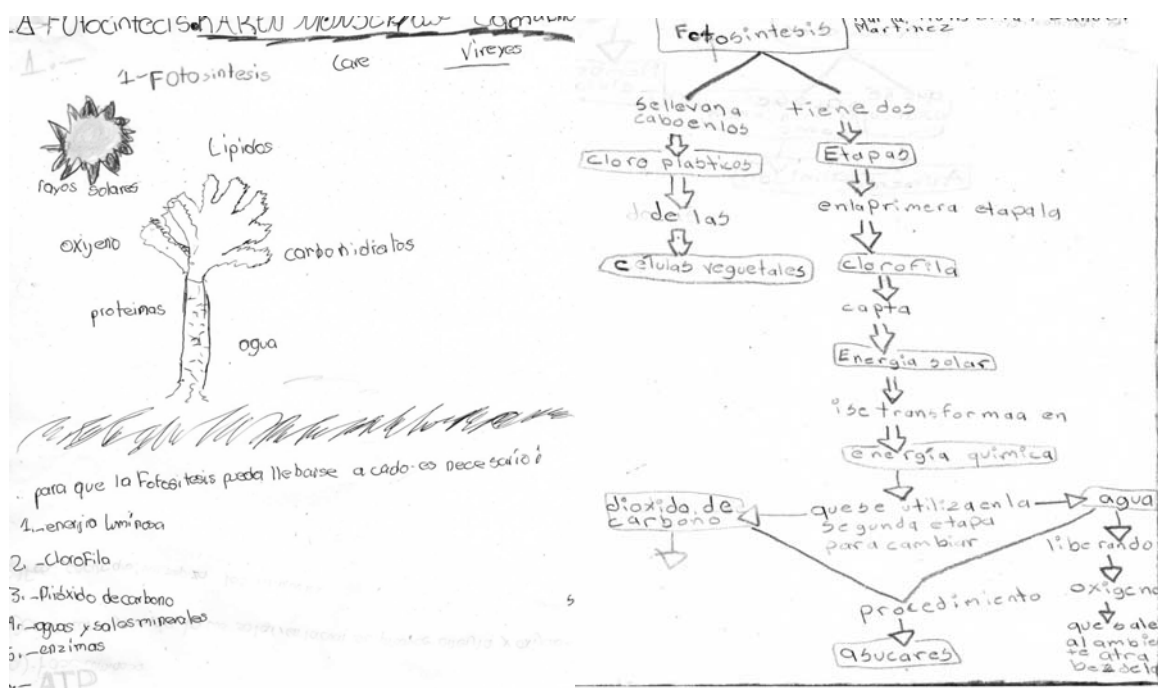 1-Fotosintesis
Care
Vireyes
Lipidos
rayos solares
oxijeno
carbohidratos
proteinas
agua
para que la Fotositesis pueda llebarse a cado es necesario
1.-energia luminosa
2.-Clorofila
3.-Dióxido de carbono
4.-aguas y salesminerales
5.-enzimas
ATP
Fotosintesis
Martinez
se llevan a
cabo en los
cloro plasticos
de las
células veguetales
tiene dos
Etapas
en la primera etapa la
clorofila
capta
Energia solar
i se transforma a en
energía química
que se utiliza en la
segunda etapa
para cambiar
dioxido de
carbono
agua
liberando
oxigeno
que sale
al ambien
te atra
bez de la
procedimiento
asucares